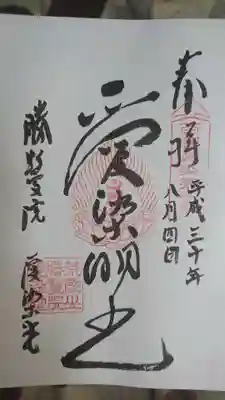 奉拝
平成三十年
八月四日
愛染明王
勝鬘院
愛染堂